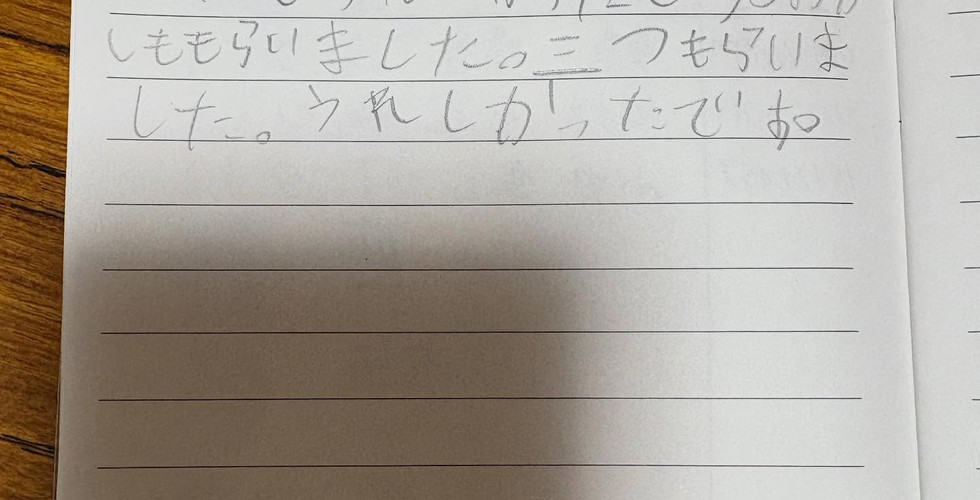 しももらいました。三つもらいま
した。うれしかったです。